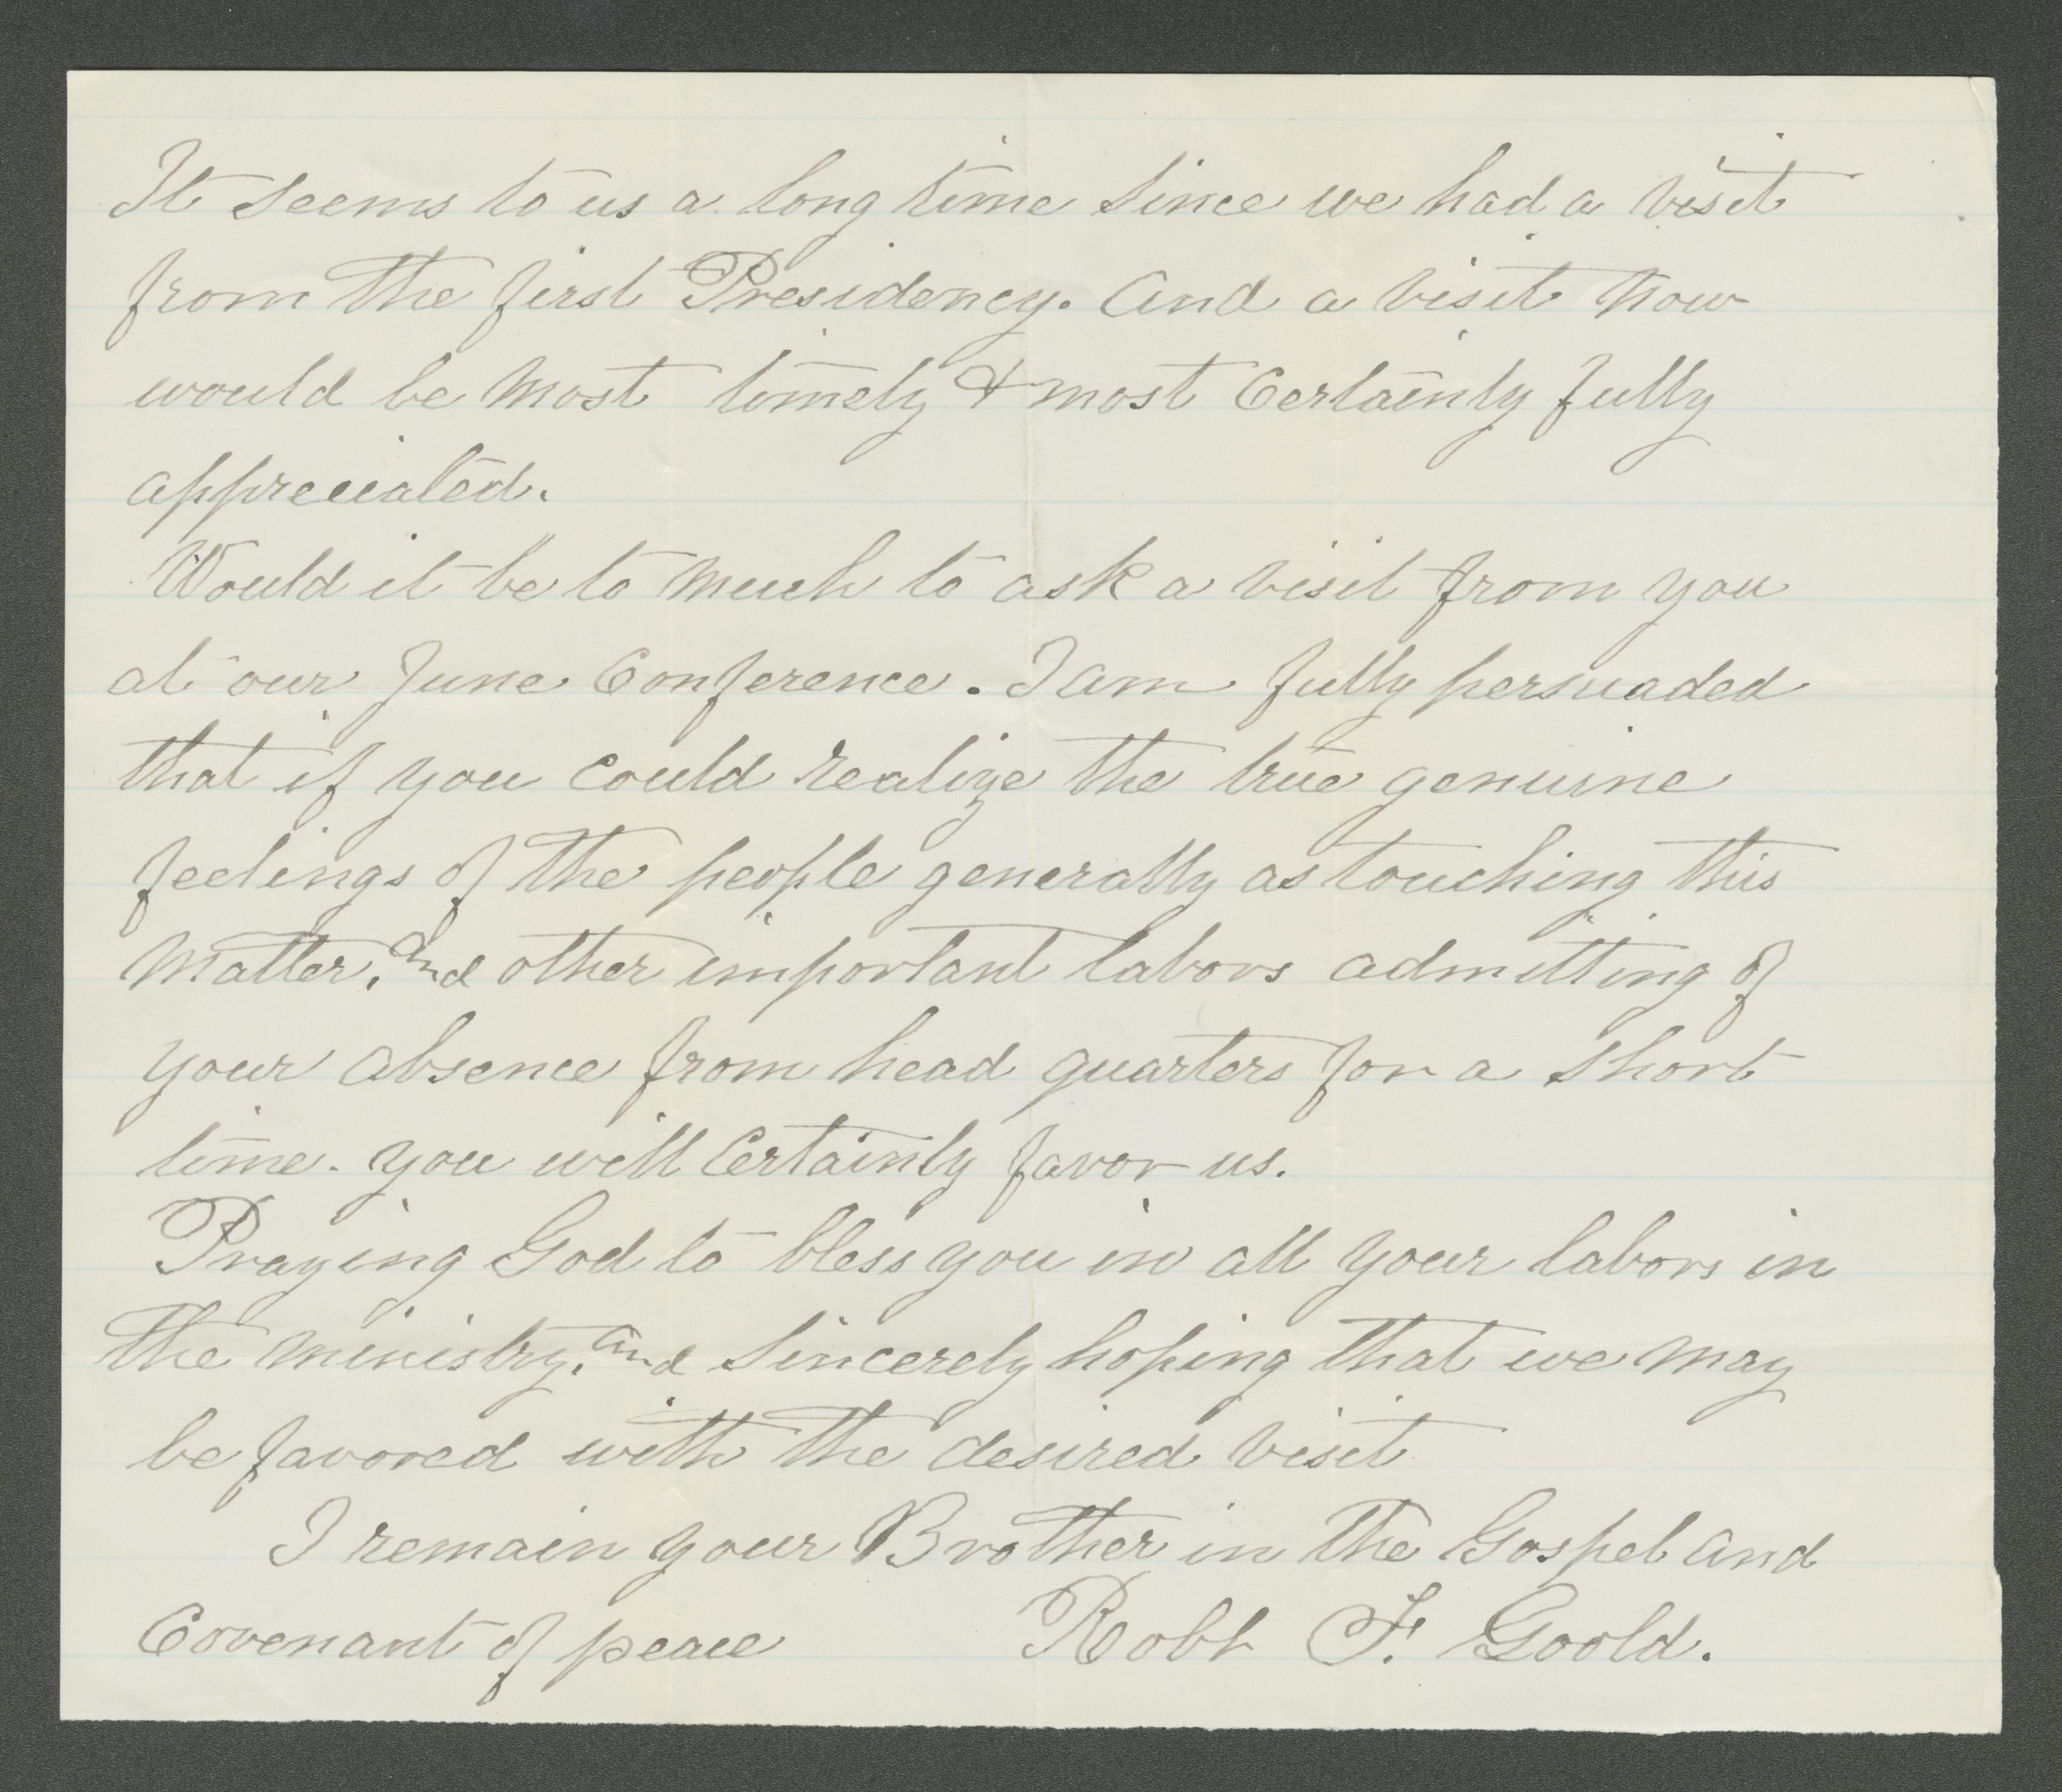 It seems to us a long time since we had a visit
from the first Presidency. And a visit now
would be most timely & most Certainly fully
appreciated.
Would it be to much to ask a visit from you
at our June Conference. I am fully persuaded
that if you could realize the true genuine
feelings of the people generally as touching this
matter, and other important labors admitting of
your absence from head quarters for a short
time. you will Certainly favor us.
Praying God to bless you in all your labors in
the ministry, and sincerely hoping that we may
be favored with the desired visit
I remain your Brother in the Gospel and
Covenant of peace Robt F. Goold.